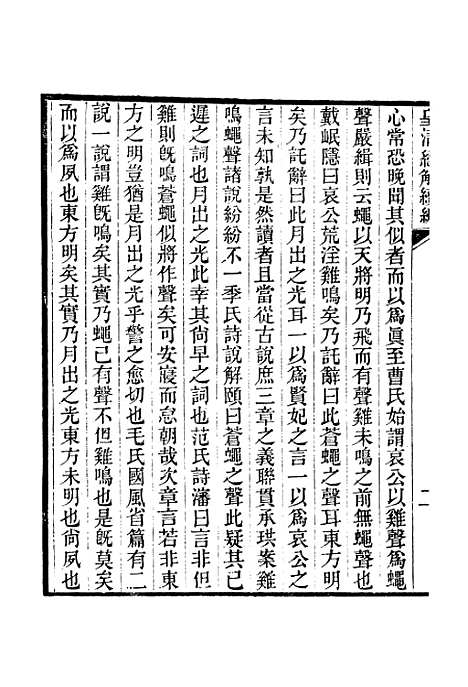 皇清經解續編
二
心常恐晚聞其似者而以爲眞至曹氏始謂哀公以雞聲爲蠅
聲嚴緝則云蠅以天將明乃飛而有聲雞未鳴之前無蠅聲也
戴岷隱曰哀公荒淫雞鳴矣乃託辭曰此蒼蠅之聲耳東方明
矣乃託辭曰此月出之光耳一以爲賢妃之言一以爲哀公之
言未知孰是然讀者且當從古說庶三章之義聯貫承珙案雞
鳴蠅聲諸說紛紛不一季氏詩說解頤曰蒼蠅之聲此疑其已
遲之詞也月出之光此幸其尙早之詞也范氏詩瀋曰言非但
雞則旣鳴蒼蠅似將作聲矣可安寢而怠朝哉次章言若非東
方之明豈猶是月出之光乎警之愈切也毛氏國風省篇有二
說一說謂雞旣鳴矣其實乃蠅已有聲不但雞鳴也是旣莫矣
而以爲夙也東方明矣其實乃月出之光東方未明也尙夙也